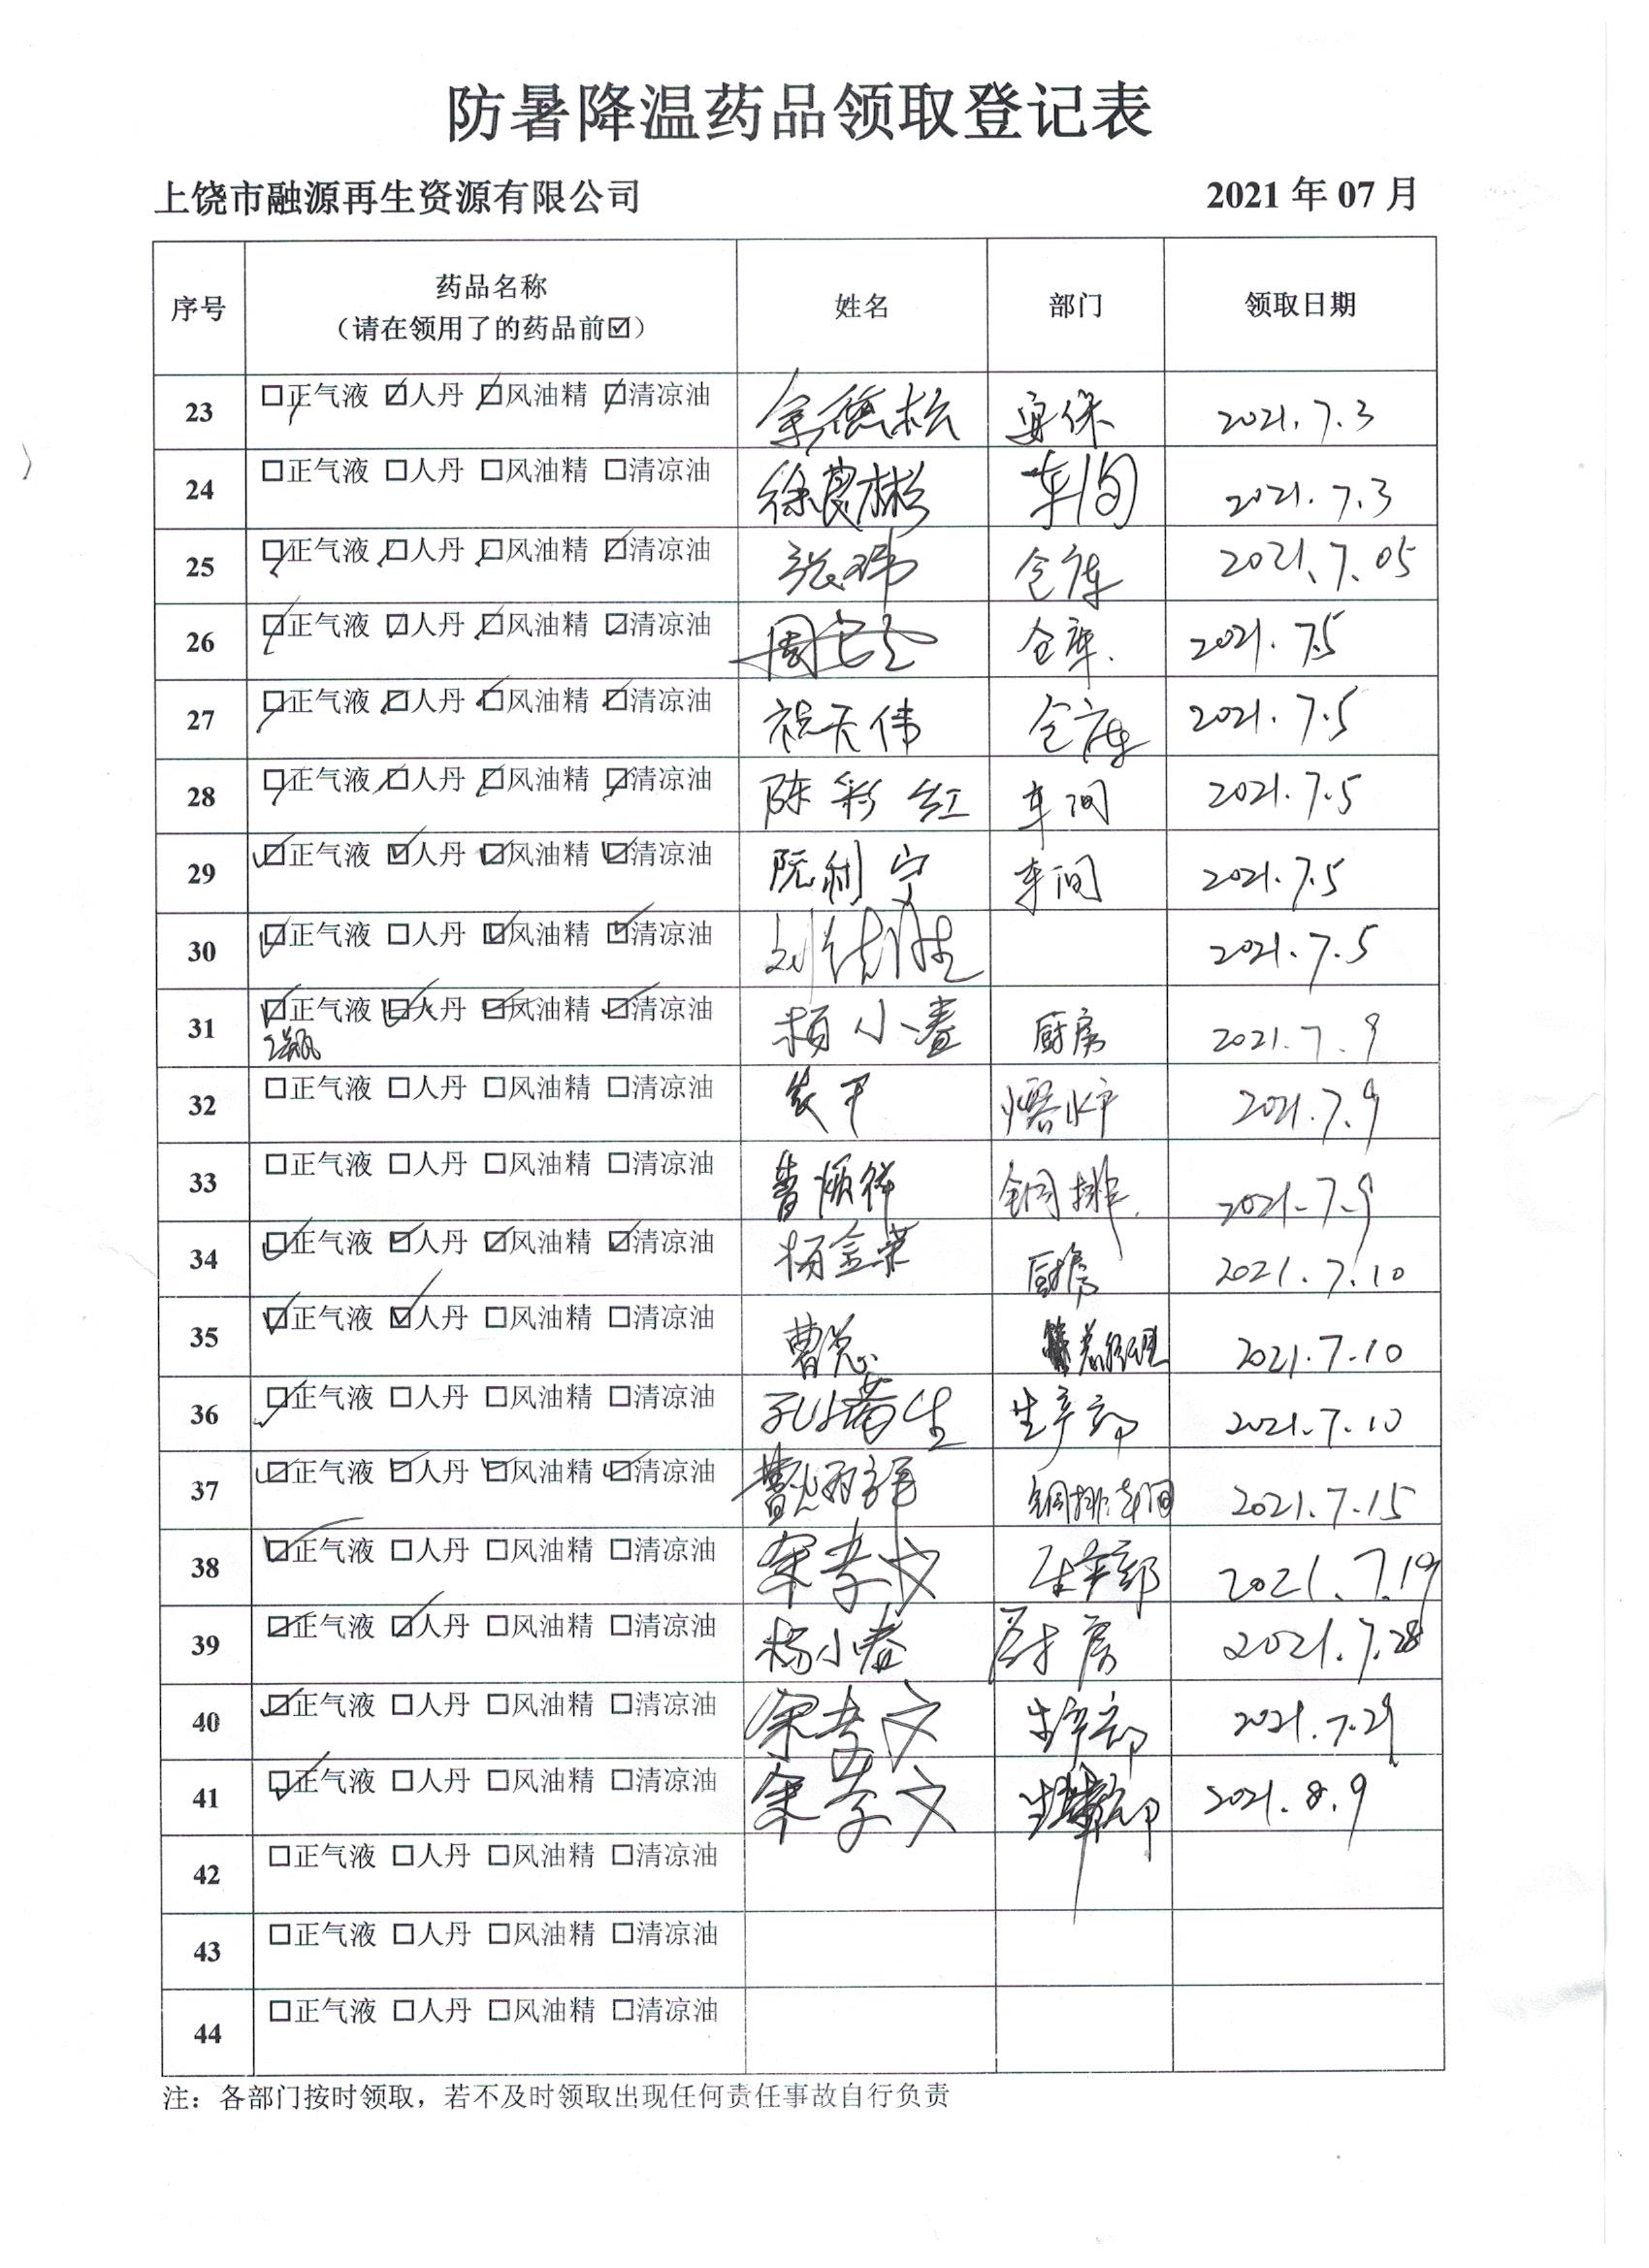 防暑降温药品领取登记表
上饶市融源再生资源有限公司 2021 年 07 月
序号 药品名称 姓名 部门 领取日期
（请在领用了的药品前☑）
23 ☑正气液 ☑人丹 ☑风油精 ☑清凉油 余德松 安保 2021.7.3
24 □正气液 □人丹 □风油精 □清凉油 徐良彬 车间 2021.7.3
25 ☑正气液 ☑人丹 ☑风油精 ☑清凉油 张玮 仓库 2021.7.05
26 ☑正气液 ☑人丹 ☑风油精 ☑清凉油 周 仓库. 2021.7.5
27 ☑正气液 ☑人丹 ☑风油精 ☑清凉油 祝天伟 仓库 2021.7.5
28 ☑正气液 ☑人丹 ☑风油精 ☑清凉油 陈彩红 车间 2021.7.5
29 ☑正气液 ☑人丹 ☑风油精 ☑清凉油 阮利宁 车间 2021.7.5
30 ☑正气液 □人丹 ☑风油精 ☑清凉油 刘 2021.7.5
31 ☑正气液 ☑人丹 ☑风油精 ☑清凉油 杨小春 厨房 2021.7.9
32 □正气液 □人丹 □风油精 □清凉油 熔炉 2021.7.9
33 □正气液 □人丹 □风油精 □清凉油 曹顺祥 铜排. 2021.7.9
34 ☑正气液 ☑人丹 ☑风油精 ☑清凉油 杨金荣 厨房 2021.7.10
35 ☑正气液 ☑人丹 □风油精 □清凉油 曹总 总经理 2021.7.10
36 ☑正气液 □人丹 □风油精 □清凉油 孔 生 生产部 2021.7.10
37 ☑正气液 ☑人丹 ☑风油精 ☑清凉油 曹 铜排车间 2021.7.15
38 ☑正气液 □人丹 □风油精 □清凉油 余孝文 生产部 2021.7.19
39 ☑正气液 ☑人丹 □风油精 □清凉油 杨小春 厨房 2021.7.28
40 ☑正气液 □人丹 □风油精 □清凉油 余孝文 生产部 2021.7.29
41 ☑正气液 □人丹 □风油精 □清凉油 余孝文 生产部 2021.8.9
42 □正气液 □人丹 □风油精 □清凉油
43 □正气液 □人丹 □风油精 □清凉油
44 □正气液 □人丹 □风油精 □清凉油
注：各部门按时领取，若不及时领取出现任何责任事故自行负责